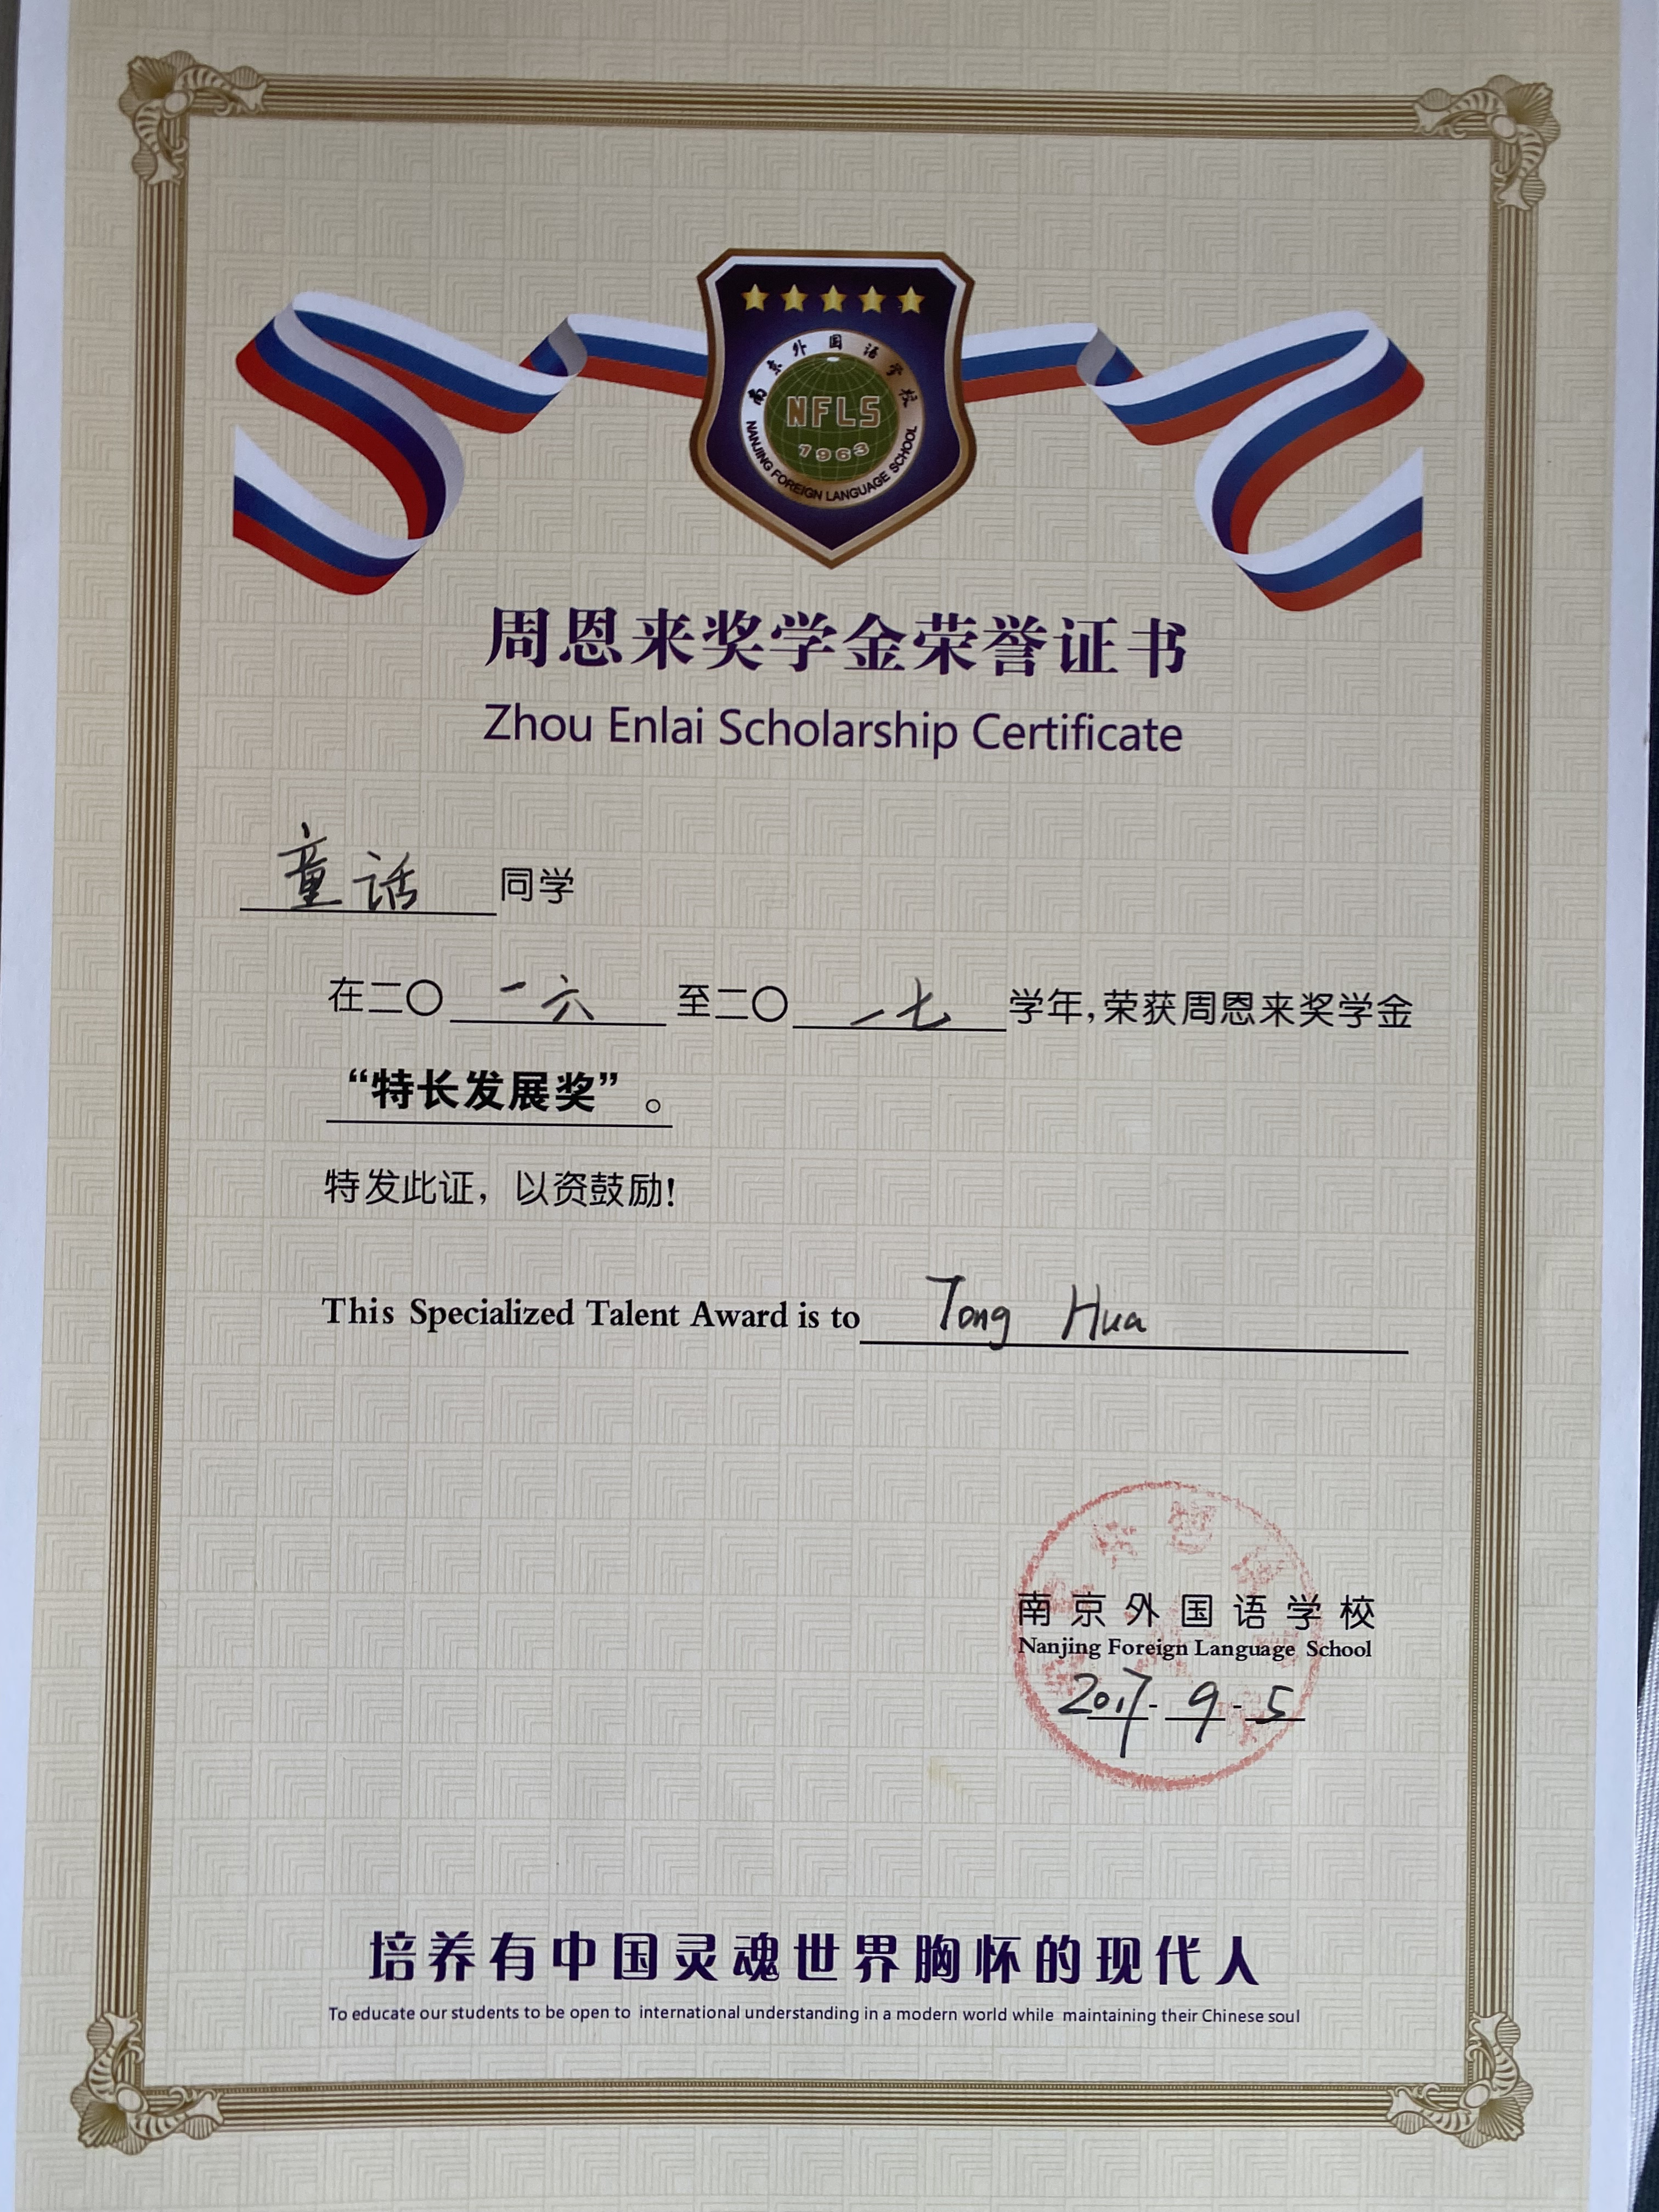 南京外国语学校
NFLS
1963
NANJING FOREIGN LANGUAGE SCHOOL
周恩来奖学金荣誉证书
Zhou Enlai Scholarship Certificate
童话 同学
在二〇一六 至二〇一七 学年,荣获周恩来奖学金
“特长发展奖”。
特发此证，以资鼓励!
This Specialized Talent Award is to Tong Hua
南京外国语学校
Nanjing Foreign Language School
2017-9-5
培养有中国灵魂世界胸怀的现代人
To educate our students to be open to international understanding in a modern world while maintaining their Chinese soul